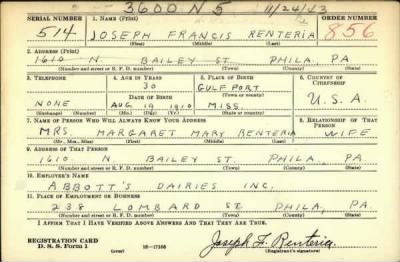 3600 N 5 11/24/43
SERIAL NUMBER 1. NAME (Print) ORDER NUMBER
514 JOSEPH FRANCIS RENTERIA 856
(First) (Middle) (Last)
2. ADDRESS (Print)
1610 N. BAILEY ST. PHILA, PA
(Number and street or R. F. D. number) (Town) (County) (State)
3. TELEPHONE 4. AGE IN YEARS 5. PLACE OF BIRTH 6. COUNTRY OF CITIZENSHIP
30 GULFPORT
NONE DATE OF BIRTH (Town or county) U.S.A.
AUG 19 1910 MISS.
(Exchange) (Number) (Mo.) (Day) (Yr.) (State or country)
7. NAME OF PERSON WHO WILL ALWAYS KNOW YOUR ADDRESS 8. RELATIONSHIP OF THAT PERSON
MRS. MARGARET MARY RENTERIA WIFE
(Mr., Mrs., Miss) (First) (Middle) (Last)
9. ADDRESS OF THAT PERSON
1610. N BAILEY ST. PHILA, PA.
(Number and street or R. F. D. number) (Town) (County) (State)
10. EMPLOYER'S NAME
ABBOTT'S DAIRIES INC.
11. PLACE OF EMPLOYMENT OR BUSINESS
238 LOMBARD ST. PHILA, PA.
(Number and street or R. F. D. number) (Town) (County) (State)
I AFFIRM THAT I HAVE VERIFIED ABOVE ANSWERS AND THAT THEY ARE TRUE.
REGISTRATION CARD
D. S. S. Form 1 (over) 16—17105 Joseph F. Renteria